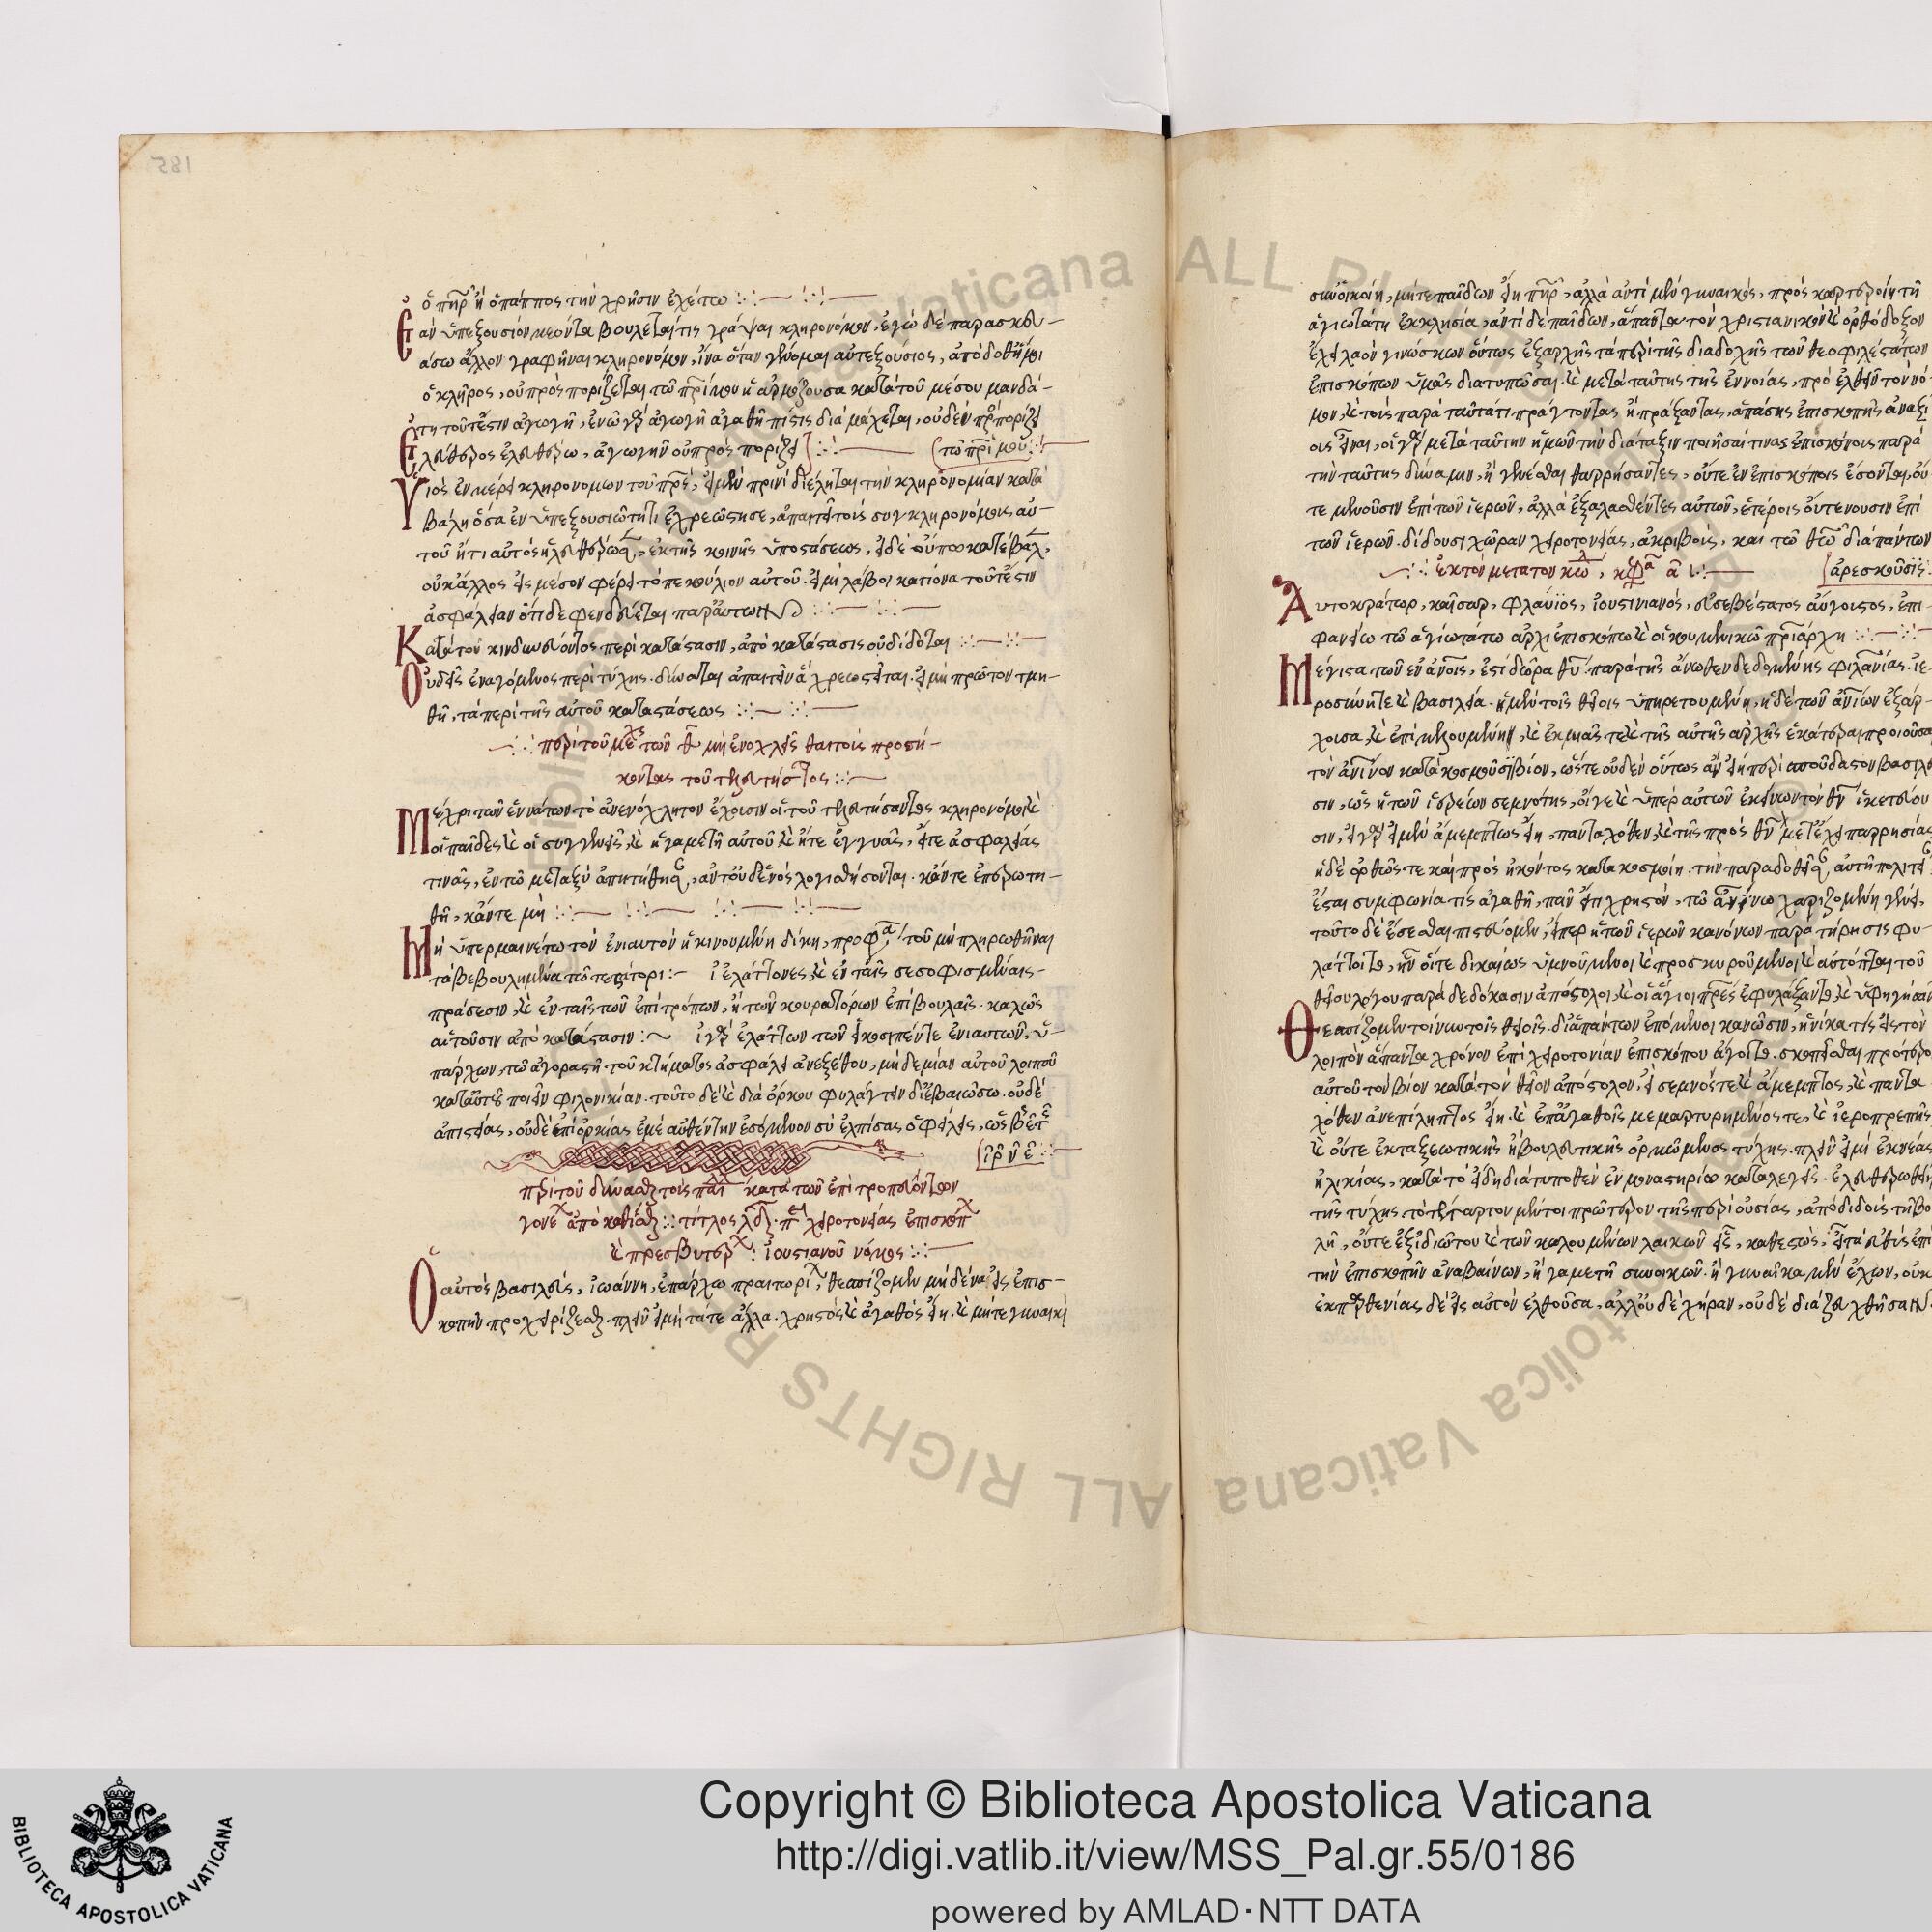 ὁ πηρ ἢ ὁ πάππος τὴν χρῆσιν ἐχέτω
Ἐὰν ὑπεξουσιόν με ὄντα βουλεται τις γράψαι κληρονόμον, ἐγὼ δὲ παρασκευ-
άσω ἄλλον γραφῆναι κληρονόμον, ἵνα ὅταν γένομαι αὐτεξούσιος, ἀποδοθῆ μοι
ὁ κλῆρος, οὐ προσπορίζεται τῶ πρί μου ἡ ἁρμόζουσα κατὰ τοῦ μέσου μανδά-
τη τουτέστιν ἀγωγὴ, ἐν ὧ γὰρ ἀγωγῆ ἀγαθὴ πίστις διαμάχεται, οὐδὲν
ἐλεύθερος ἐλευθέρω, ἀγωγὴν οὐ προσπορίζει
τῶ πρί μου
Υἱὸς ἐν μέρει κληρονομων τοῦ πρς, εἰ μὲν πρινὶ διέληται τὴν κληρονομίαν κατα
βάλη ὅσα ἐν ὑπεξουσιώτητι ἐχρεώστησε, ἀπαιτεῖ τοὺς συγκληρονόμους αὐ-
τοῦ
οὐκ ἄλλος εἰς μέσον φέρει τὸ πεκούλιον αὐτοῦ. εἰ μὴ λάβοι κατιόνα τουτέστιν
ἀσφάλειαν ὅτι δεφενδεύεται παρ' αὐτων
Κατὰ τοῦ κινδυνεύοντος περὶ κατάστασιν, ἀποκατάστασις οὐ δίδοται
Οὐδεὶς ἐναγόμενος περὶ τύχης. δύναται ἀπαιτεῖν ἃ χρεωστεῖται. εἰ μὴ πρῶτον τμη-
θῆ, τὰ περὶ τῆς αὐτοῦ καταστάσεως
περὶ τοῦ με των θ μὴ ἐνοχλεῖσθαι τοὺς προσή-
κοντας τοῦ τελευτήσαντος
Μέχρι τῶν ἐννάτων τὸ ἀνενόχλητον ἔχοισιν οἱ τοῦ τελευτήσαντος κληρονόμοι καὶ
οἱ παῖδες καὶ οἱ συγγενεῖς, καὶ ἡ γαμετὴ αὐτοῦ καὶ ἤτε ἐγγυὰς, εἴτε ἀσφαλείας
τινὰς, ἐν τῶ μεταξὺ ἀπητήθησ, ἀντ' οὐδενὸς λογισθήσονται. κἄντε ἐπερωτη-
θῆ, κἄντε μὴ
Μὴ ὑπερμαινέτω τὸν ἐνιαυτὸν ἡ κινουμένη δίκη, προφα, τοῦ μὴ πληρωθῆναι
τὰ βεβουλημένα τῶ τεστάτορι :- ἱ ἐλάττονες καὶ ἐν ταῖς σεσοφισμέναις
πράσεσιν, καὶ ἐν ταῖς τῶν ἐπιτρόπων, ἢ τῶν κουρατόρων ἐπιβουλαῖς. καλῶς
αἰτοῦσιν ἀποκατάστασιν :~ ἱ γὰρ ἐλάττων τῶν εἰκοσιπέντε ἐνιαυτῶν, ὑ-
πάρχων, τῶ ἀγοραστῆ τοῦ κτήματος ἀσφάλει ἀνεξέθου, μηδεμίαν αὐτοῦ λοιποῦ
ποιεῖν φιλονικίαν. τοῦτο δὲ καὶ διὰ ὅρκου φυλάγτειν διεβαιώσω. οὐδὲ
ἀπιστίας, οὐδὲ ἐπιορκίας ἐμὲ αὐθέντην ἐσόμενον σὺ ἐλπίσας ὀφείλεις, ὡς
περὶ τοῦ δύνασθαι τοὺς κατὰ τῶν ἐπιτροπευόντων
γονε ἀποκαθίας :· τίτλος χειροτονίας ἐπισκόπ
καὶ πρεσβυτερ : ἰουστιανοῦ νόμος
Ὁ αὐτὸς βασιλεὺς, ἰωάννη, ἐπάρχω πραιτορί, θεσπίζομεν μηδένα εἰς ἐπισ-
κοπὴν προχειρίζεσθαι. πλὴν εἰ μὴ τάτε ἄλλα. χρηστὸς καὶ ἀγαθὸς εἴη. καὶ μήτε γυναικὶ
συνοικοίη, μήτε παίδων εἴη πηρ, ἀλλὰ ἀντὶ μὲν γυναικὸς, προσκαρτεροίη τῆ
ἁγιωτάτη ἐκκλησία, ἀντὶ δὲ παίδων, ἅπαντα τὸν χριστιανικὸν καὶ ὀρθόδοξον
ἔχει λαὸν γινώσκων οὕτως ἐξαρχῆς τὰ περὶ τῆς διαδοχῆς τῶν θεοφιλεστάτων
ἐπισκόπων ὑμᾶς διατυπῶσαι. καὶ μετὰ ταύτης τῆς ἐννοίας, προελθεῖν τὸν νό-
μον, καὶ τοὺς παρὰ ταῦτά τι πράγτοντας ἢ πράξαντας, ἁπάσης ἐπισκοπῆς ἀναξί
οις εἶναι, οἱ γὰρ μετὰ ταύτην ἡμῶν τὴν διάταξιν ποιῆσαί τινας ἐπισκόποις παρὰ
τὴν ταύτης δύναμιν, ἢ γενέσθαι θαρρήσαντες, οὔτε ἐν ἐπισκόποις ἔσονται, οὔ
τε μενοῦσιν ἐπὶ τῶν ἱερῶν, ἀλλὰ ἐξελασθέντες αὐτῶν, ἑτέροις ἐπὶ
τῶν ἱερῶν. δίδουσι χῶραν χειροτονίας, ἀκριβοῖς, και τῶ θεῶ διὰ πάντων
ἐκ τον μετα τον κω, κεφα α
ἀρεσκούσῃς
Αυτοκράτωρ, καῖσαρ, φλαύϊος, ἰουστινιανὸς, εὐσεβέστατος αὔγουστος, ἐπι-
φανείω τῶ ἁγιωτάτω ἀρχιεπισκόπω καὶ οἰκουμενικῶ πριάρχη
Μέγιστα τῶν ἐν ἀνοις, ἐστὶ δῶρα θυ παρὰ τῆς ἄνωθεν δεδομένης φιλανίας. ἱε-
ροσύνητε καὶ βασιλεία. ἡ μὲν τοῖς θείοις ὑπηρετουμένη, ἡ δὲ τῶν ἀνίων ἐξάρ-
χοισα, καὶ ἐπιμελουμένη, καὶ ἐκ μιᾶς τε καὶ τῆς αὐτῆς ἀρχῆς ἑκάτεραι προιοῦσα
τὸν ἀνίνον κατακοσμοῦσι βίον, ὥστε οὐδὲν οὕτως ἂν εἴη περὶ σπούδαστον βασιλεῦ
σιν, ὡς ἡ τῶν ἱερέων σεμνότης, οἵγε καὶ ὑπὲρ αὐτῶν ἐκείνων τὸν θν ἱκετεύου
σιν, εἰ γὰρ ἡ μὲν ἄμεμπτως εἴη, πανταχόθεν, καὶ τῆς πρὸς θν μετέχει παρρησίας
ἡ δὲ ὀρθῶς τε καὶ προσηκόντως κατακοσμοίη τὴν παραδοθεῖσ, αὐτῆ πολιτεί
ἔσται συμφωνία τίς ἀγαθὴ, πᾶν εἴτι χρηστὸν, τῶ ανίνω χαριζομένη γένει,
τοῦτο δὲ ἔσεσθαι πιστεύομεν, εἴπερ ἡ τῶν ἱερῶν κανόνων παρατήρησις φυ-
λάττοιτο, ἣν οἵτε δικαίως ὑμνούμενοι καὶ προσκυρούμενοι καὶ αὐτόπται τοῦ
θεῖου λόγου παραδεδόκασιν ἀπόστολοι, καὶ οἱ ἅγιοι πρες ἐφυλάξαντο καὶ ὑφηγήσαν
Θεσπίζομεν τοίνυν τοῖς θείοις διὰ πάντων ἑπόμενοι κανῶσιν, ἡνίκα τὶς εἰς τὸν
λοιπὸν ἅπαντα χρόνον ἐπὶ χειροτονίαν ἐπισκόπου ἄγοιτο. σκοπεῖσθαι πρότερο
αὐτοῦ τὸν βίον κατὰ τὸν θεῖον ἀπόστολον, εἰ σεμνός τε καὶ ἄμεμπτος, καὶ παντα
χόθεν ἀνεπίληπτος εἴη. καὶ ἐπ' ἀγαθοῖς μεμαρτυρημένος τε, καὶ ἱεροπρεπὴς
καὶ οὔτε ἐκ ταξεωτικῆς ἢ βουλευτικῆς ὁρμώμενος τύχης. πλεὴν εἰ μὴ ἐκ νέας
ἡλικίας, κατὰ τὸ ἤδη διατυποθὲν ἐν μοναστηρίω καταλεγεὶς. ἐλευθερωθείη
τῆς τύχης τὸ τέταρτον μέντοι πρῶτερον τῆς περὶ οὐσίας, ἀποδιδοὺς τῆ βο
λῆ, οὔτε ἐξ ἰδιῶτου καὶ τῶν καλουμένων λαικῶν εἷς, καθεστὼς, εἶτα εὐθὺς ἐπὶ
τὴν ἐπισκοπὴν ἀναβαίνων, ἢ γαμετῆ συνοικῶν. ἢ γυναῖκα μὲν ἔχων, οὐκ
ἐκ παρθενίας δὲ εἰς αὐτὸν ἐλθοῦσα, ἀλλ' οὐδὲ χήραν, οὐδὲ διαζευχθῆσαν
185
Copyright © Biblioteca Apostolica Vaticana
http://digi.vatlib.it/view/MSS_Pal.gr.55/0186
powered by AMLAD·NTT DATA
BIBLIOTECA APOSTOLICA VATICANA